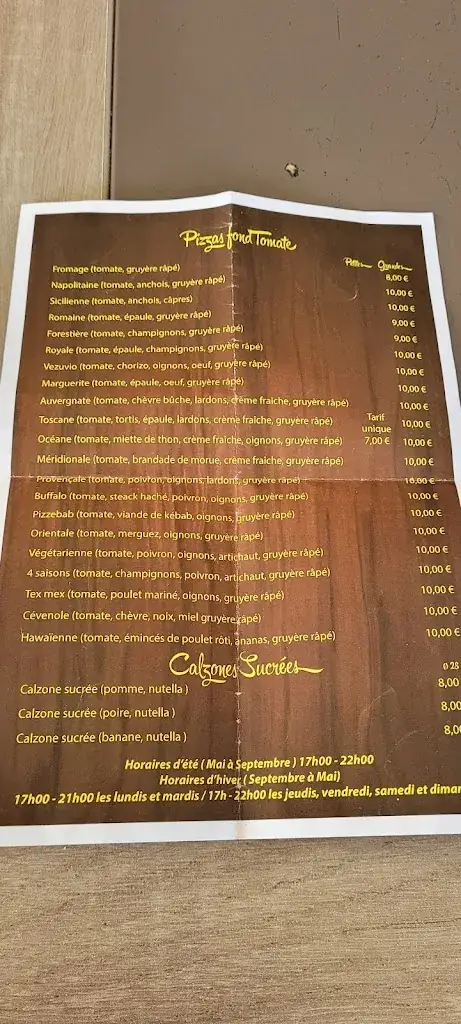 Pizzas fond Tomate
Petites Grandes
Fromage (tomate, gruyère râpé) 8,00 €
Napolitaine (tomate, anchois, gruyère râpé) 10,00 €
Sicilienne (tomate, anchois, câpres) 10,00 €
Romaine (tomate, épaule, gruyère râpé) 9,00 €
Forestière (tomate, champignons, gruyère râpé) 9,00 €
Royale (tomate, épaule, champignons, gruyère râpé) 10,00 €
Vezuvio (tomate, chorizo, oignons, oeuf, gruyère râpé) 10,00 €
Marguerite (tomate, épaule, oeuf, gruyère râpé) 10,00 €
Auvergnate (tomate, chèvre bûche, lardons, crème fraiche, gruyère râpé) 10,00 €
Toscane (tomate, tortis, épaule, lardons, crème fraiche, gruyère râpé) 10,00 €
Tarif
unique
7,00 €
Océane (tomate, miette de thon, crème fraîche, oignons, gruyère râpé) 10,00 €
Méridionale (tomate, brandade de morue, crème fraiche, gruyère râpé) 10,00 €
Provençale (tomate, poivron, oignons, lardons, gruyère râpé) 10,00 €
Buffalo (tomate, steack haché, poivron, oignons, gruyère râpé) 10,00 €
Pizzebab (tomate, viande de kébab, oignons, gruyère râpé) 10,00 €
Orientale (tomate, merguez, oignons, gruyère râpé) 10,00 €
Végétarienne (tomate, poivron, oignons, artichaut, gruyère râpé) 10,00 €
4 saisons (tomate, champignons, poivron, artichaut, gruyère râpé) 10,00 €
Tex mex (tomate, poulet mariné, oignons, gruyère râpé) 10,00 €
Cévenole (tomate, chèvre, noix, miel gruyère râpé) 10,00 €
Hawaïenne (tomate, émincés de poulet rôti, ananas, gruyère râpé) 10,00 €
Calzones Sucrées
ø 28
Calzone sucrée (pomme, nutella ) 8,00
Calzone sucrée (poire, nutella ) 8,00
Calzone sucrée (banane, nutella ) 8,0
Horaires d'été ( Mai à Septembre ) 17h00 - 22h00
Horaires d'hiver ( Septembre à Mai)
17h00 - 21h00 les lundis et mardis / 17h - 22h00 les jeudis, vendredi, samedi et dimar